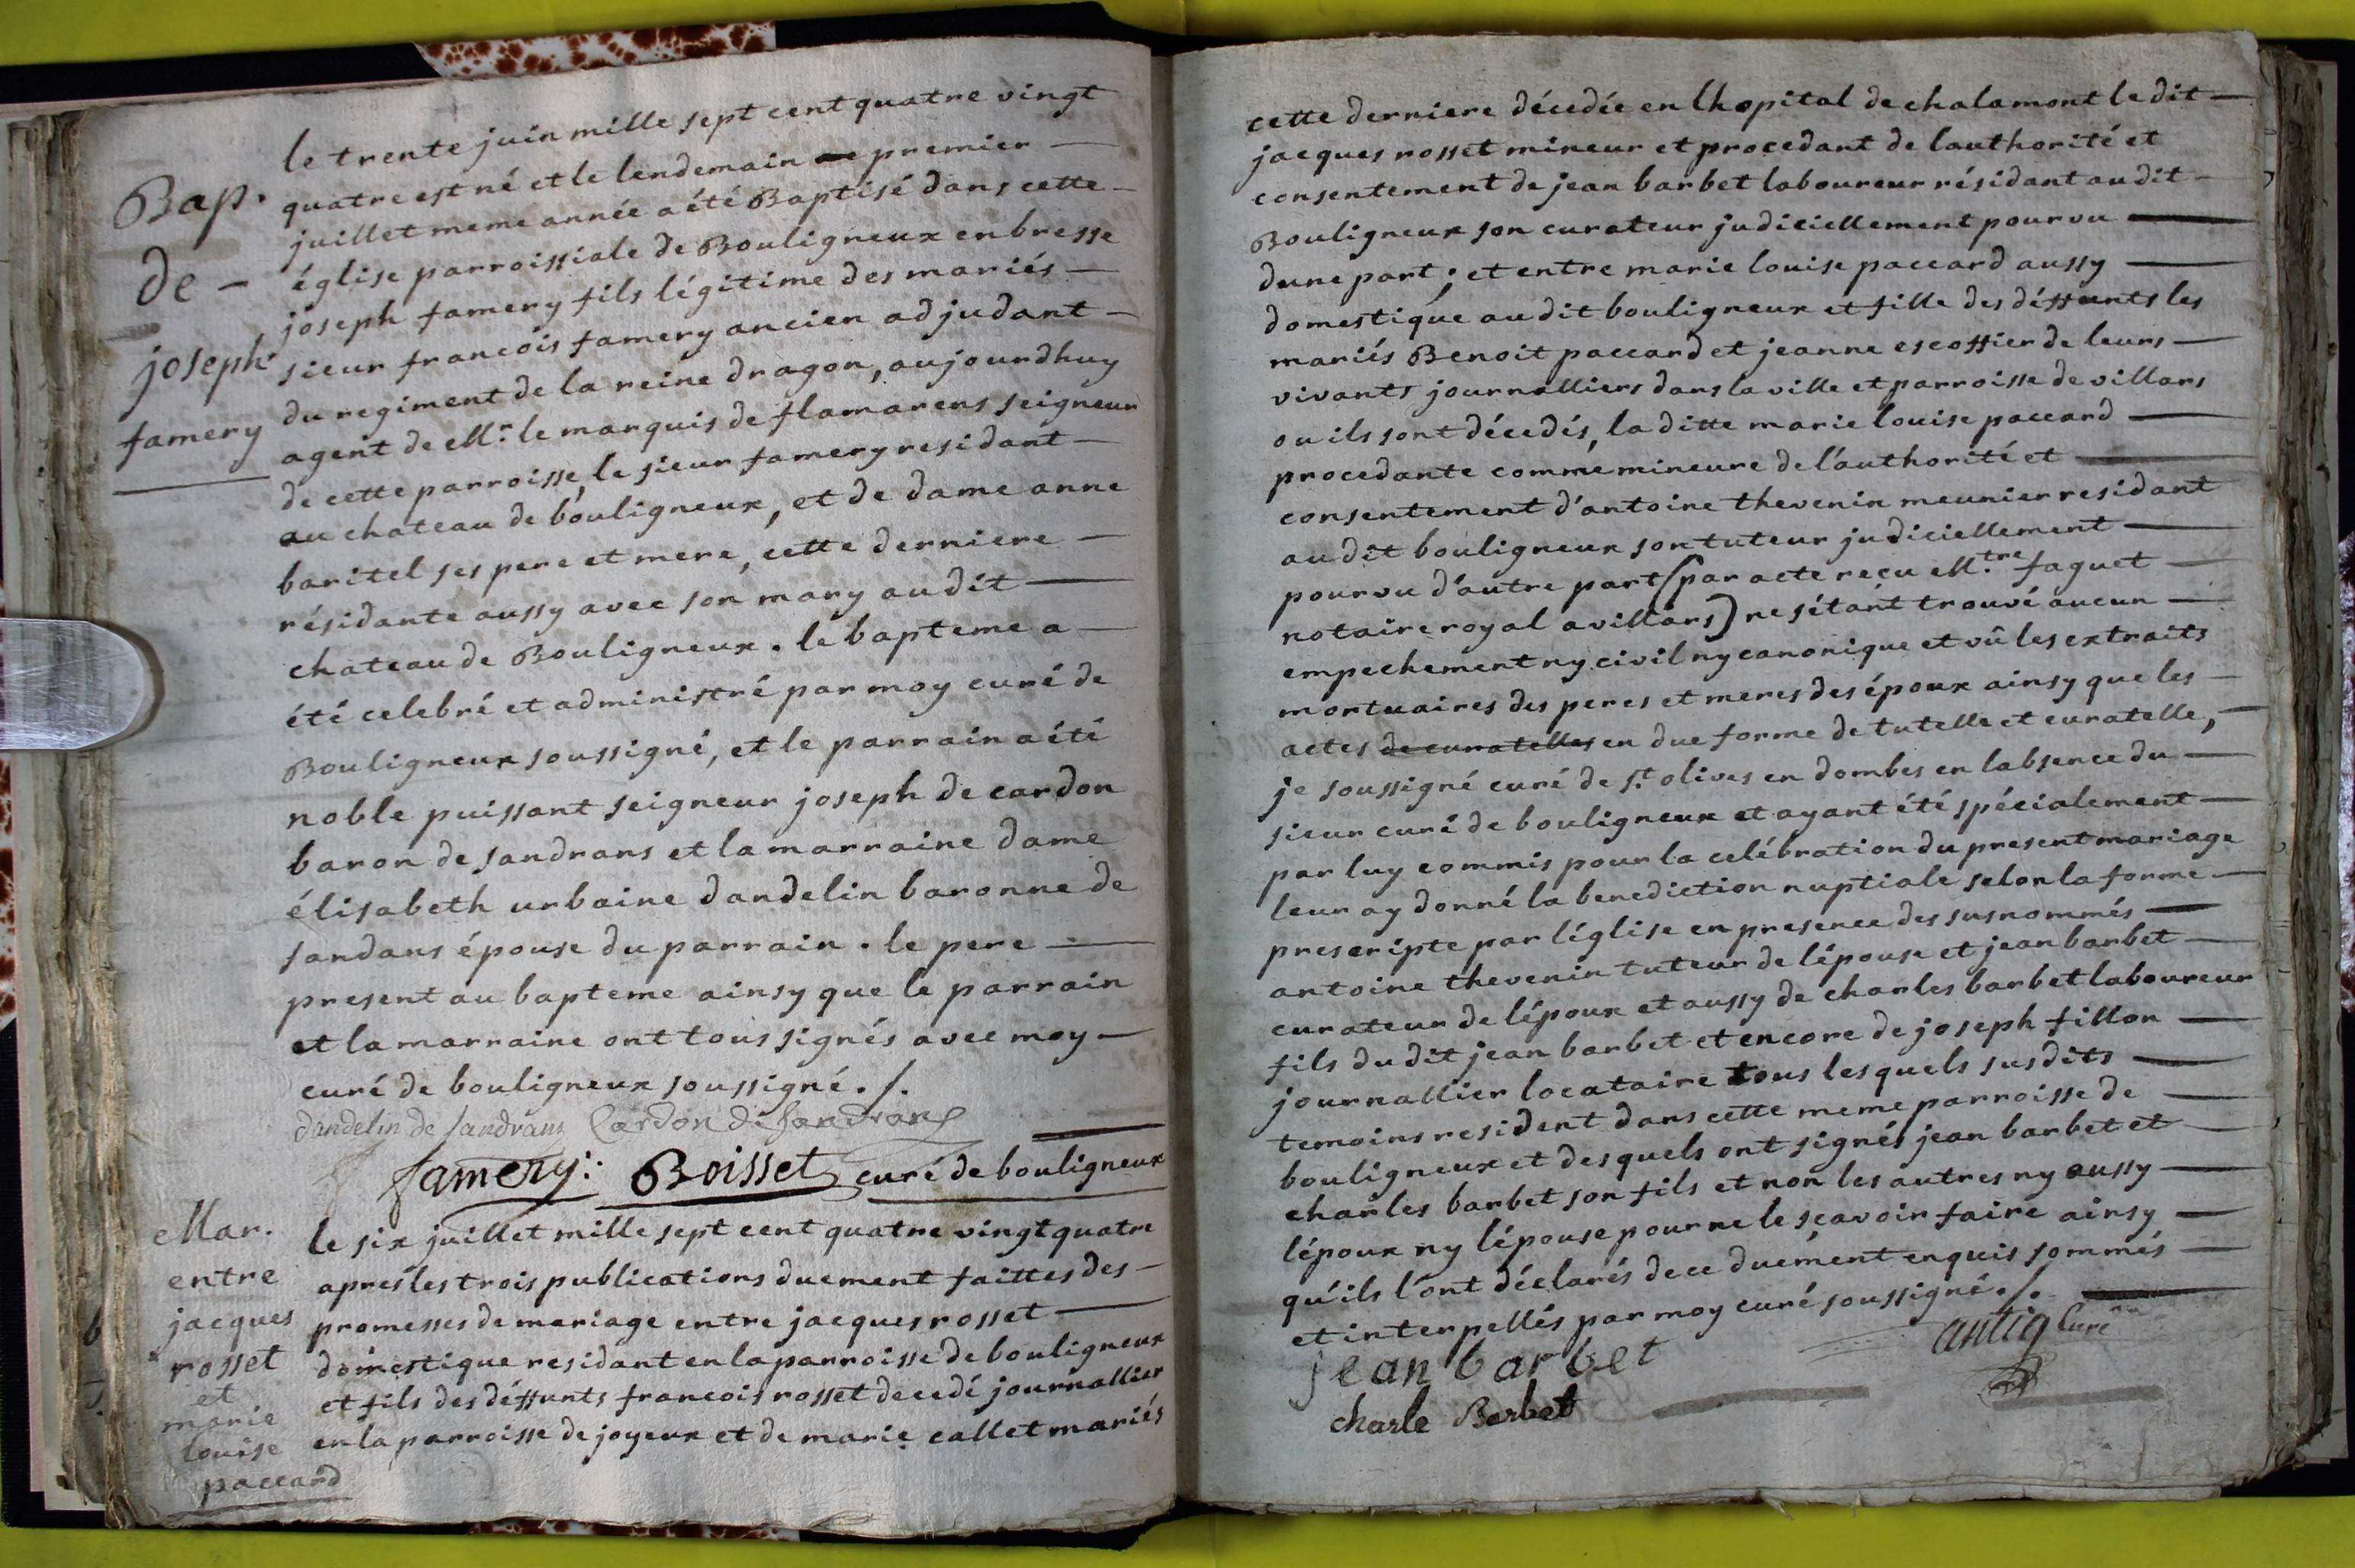 Bap.
de -
joseph
famery
le trente juin mille sept cent quatre vingt
quatre est né et le lendemain premier
juillet meme année a été Baptisé dans cette
église parroissiale de Bouligneux en bresse
joseph famery fils légitime des mariés
sieur francois famery ancien adjudant
du regiment de la reine dragon, aujourdhuy
agent de Mr. le marquis de flamarens seigneur
de cette parroisse, le sieur famery residant
au chateau de bouligneux, et de dame anne
baritel ses pere et mere, cette derniere
résidante aussy avec son mary au dit
chateau de Bouligneux. le bapteme a
été celebré et administré par moy curé de
Bouligneux soussigné, et le parrain a été
noble puissant seigneur joseph de cardon
baron de sandrans et la marraine dame
élisabeth urbaine dandelin baronne de
sandans épouse du parrain. le pere
present au bapteme ainsy que le parrain
et la marraine ont tous signés avec moy
curé de bouligneux soussigné ./.
dandelin de sandrans Cardon de Sandrans
famery: Boisset curé de bouligneux
Mar.
entre
jacques
rosset
et
marie
louise
paccard
le six juillet mille sept cent quatre vingt quatre
apres les trois publications duement faittes des
promesses de mariage entre jacques rosset
domestique residant en la parroisse de bouligneux
et fils des déffunts francois rosset decedé journallier
en la parroisse de joyeux et de marie callet mariés
cette derniere décedée en lhopital de chalamont le dit
jacques rosset mineur et procedant de lauthorité et
consentement de jean barbet laboureur résidant au dit
Bouligneux son curateur judiciellement pourvu
dune part; et entre marie louise paccard aussy
domestique au dit bouligneux et fille des déffunts les
mariés Benoit paccard et jeanne escoffier de leurs
vivants journalliers dans la ville et parroisse de villars
ou ils sont décedés, la ditte marie louise paccard
procedante comme mineure de l'authorité et
consentement d'antoine thevenin meunier residant
au dit bouligneux son tuteur judiciellement
pourvu d'autre part (par acte reçu M.tre faguet
notaire royal a villars) ne s'étant trouvé aucun
empechement ny civil ny canonique et vû les extraits
mortuaires des peres et meres des époux ainsy que les
actes de curatelles en due forme de tutelle et curatelle,
je soussigné curé de st. olives en dombes en labsence du
sieur curé de bouligneux et ayant été spécialement
par luy commis pour la celébration du present mariage
leur ay donné la benediction nuptiale selon la forme
prescripte par léglise en presence des susnommés
antoine thevenin tuteur de lépouse et jean barbet
curateur de lépoux et aussy de charles barbet laboureur
fils du dit jean barbet et encore de joseph fillon
journallier locataire tous lesquels susdits
temoins resident dans cette meme parroisse de
bouligneux et desquels ont signés jean barbet et
charles barbet son fils et non les autres ny aussy
lépoux ny lépouse pour ne le sçavoir faire ainsy
qu'ils l'ont déclarés de ce duement enquis sommés
et interpellés par moy curé soussigné ./.
jean barbet
antiq Curé
charle Barbet